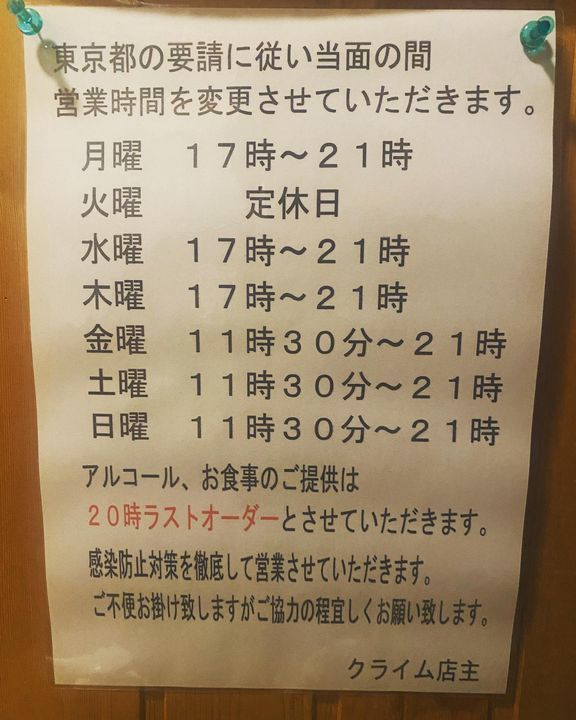 東京都の要請に従い当面の間
営業時間を変更させていただきます。
月曜 １７時～２１時
火曜 定休日
水曜 １７時～２１時
木曜 １７時～２１時
金曜 １１時３０分～２１時
土曜 １１時３０分～２１時
日曜 １１時３０分～２１時
アルコール、お食事のご提供は
２０時ラストオーダーとさせていただきます。
感染防止対策を徹底して営業させていただきます。
ご不便お掛け致しますがご協力の程宜しくお願い致します。
クライム店主